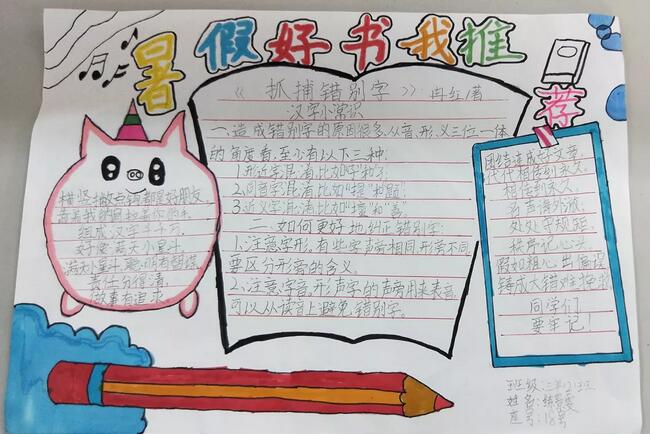 暑假好书我推荐
《抓捕错别字》冉红/著
汉字小常识
一、造成错别字的原因很多,从音、形、义三位一体
的角度看,至少有以下三种:
1.形近字混淆比如
2.同音字混淆比如"提"和"题"
3.近义字混淆比如
二、如何更好地纠正错别字:
1.注意字形,有些字声旁相同,形旁不同
要区分形旁的含义。
2.注意字音,形声字的声旁用来表音,
可以从读音上避免错别字。
横竖撇点钩都是好朋友,
音是我的
组成汉字千千万,
好像蓝天小星斗。
满天小星斗,
责任分得清,
做事有追求
团结连成好文章
代代相传到永久。
相传到永久,
处处守规距。
时时记心头。
假如粗心出偏误
铸成大错难挽救
同学们
要牢记!
班级:
姓名:
座号:18号